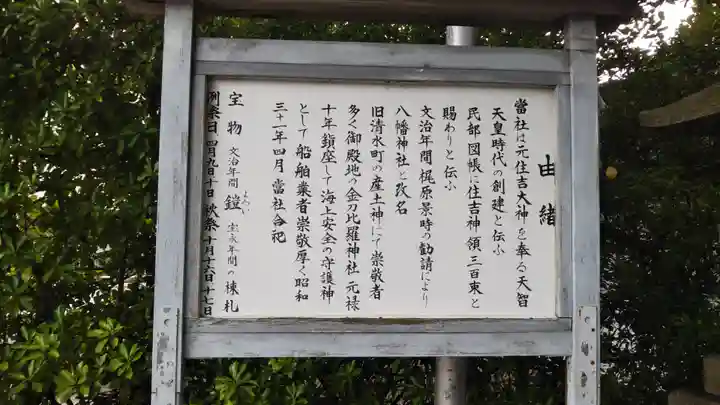 由緒
當社は元住吉大神を奉る天智
天皇時代の創建と伝ふ
民部図帳に住吉神領三百束と
賜わりと伝ふ
文治年間梶原景時の勧請により
八幡神社と改名
旧清水町の産土神にて崇敬者
多く御殿地の金刀比羅神社元禄
十年鎮座して海上安全の守護神
として船舶業者崇敬厚く昭和
三十一年四月當社合祀
宝物 文治年間 鎧 よろい 宝永年間の棟札
例祭日 四月九日十日 秋祭 十月十六日十七日